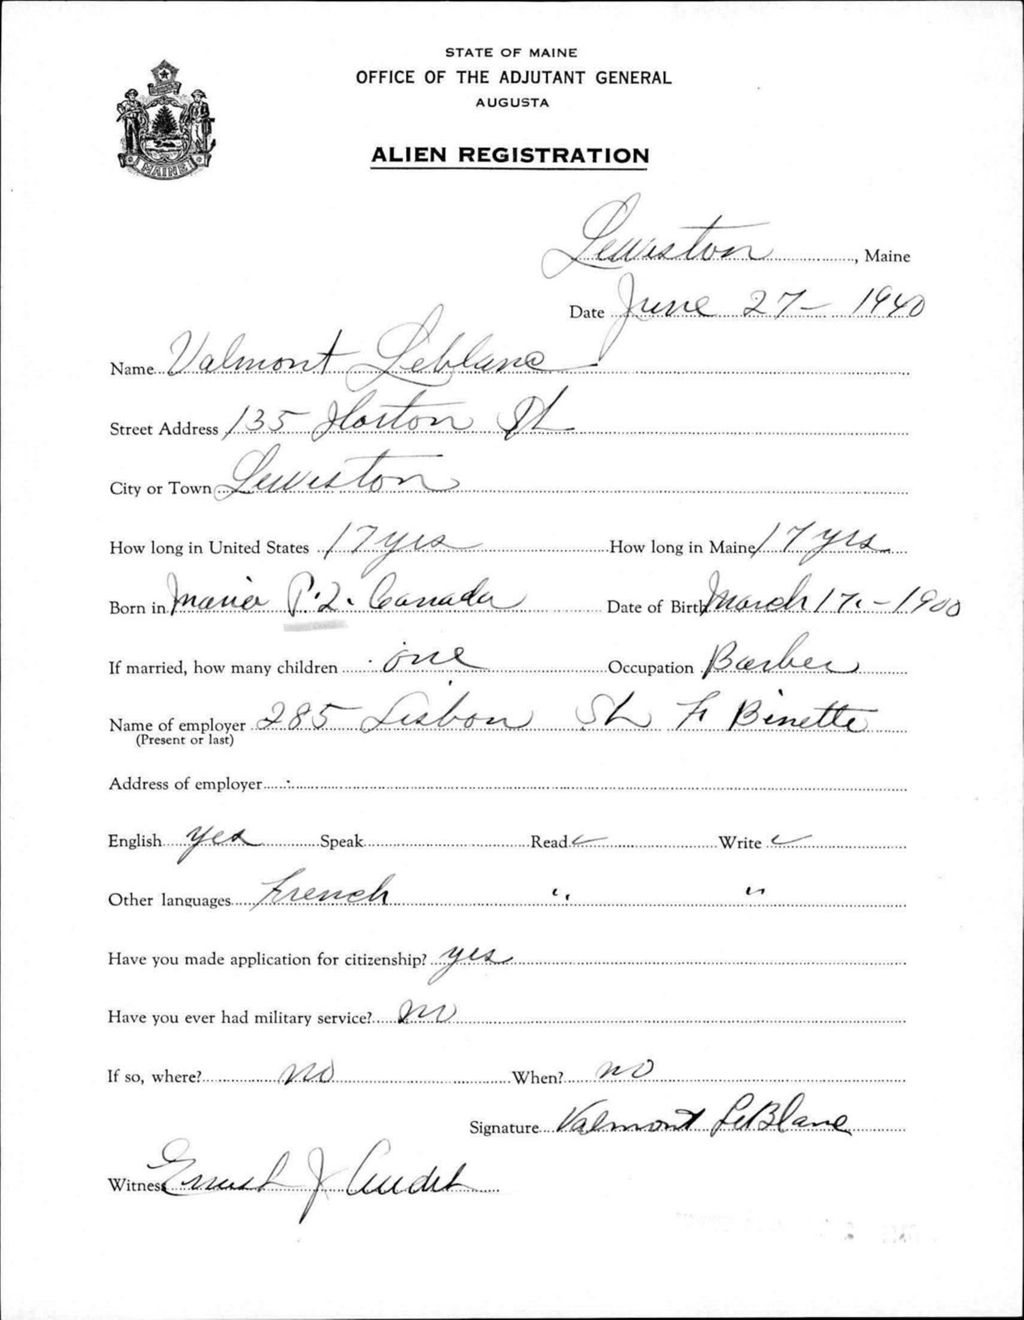 STATE OF MAINE
OFFICE OF THE ADJUTANT GENERAL
AUGUSTA
ALIEN REGISTRATION
MAINE
Lewiston, Maine
Date June 27 - 1940
Name Valmont Leblanc
Street Address 135 Horton St
City or Town Lewiston
How long in United States 17 yrs How long in Maine 17 yrs
Born in Maria P.Q. Canada Date of Birth March 17. - 1900
If married, how many children one Occupation Barber
Name of employer 285 Lisbon St F Binette
(Present or last)
Address of employer
English yes Speak Read ✓ Write ✓
Other languages French " "
Have you made application for citizenship? yes
Have you ever had military service? no
If so, where? no When? no
Signature Valmont LeBlanc
Witness Ernest J Audet